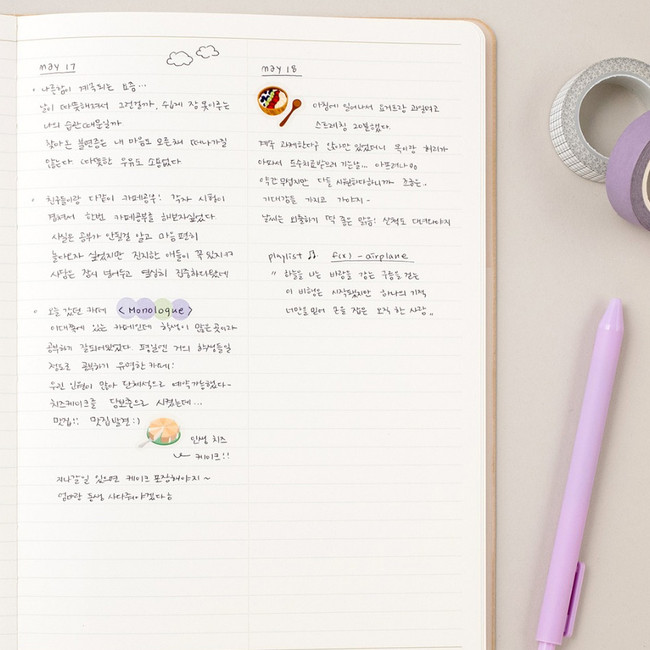 MAY 17
• 나른함이 계속되는 요즘...
날이 따뜻해져서 그런걸까, 쉽게 잠 못이루는
나의 습관 때문일까
찾아온 불면증은 내 마음도 모른채 떠나가질
않는다 따뜻한 우유도 소용없다
• 친구들이랑 다같이 카페공부! 각자 시험이
한번 카페공부를 해보자싶었다
사실은 공부가 안될걸 알고 마음 편히
놀다오자 싶었지만 진지한 애들이 꼭 있지ㅋㅋ
사담은 잠시 넣어두고 열심히 집중하다왔네
• 오늘 갔던 카페 <Monologue>
이대쪽에 있는 카페인데 학생이 많은 곳이라
공부하기 잘되어있었다 평일엔 거의 학생들일
정도로 공부하기 유명한 카페!
우린 인원이 많아 단체석으로 예약가능했다~
치즈케이크를 당보충으로 시켰는데...
맛집!! 맛집발견 :)
인생 치즈
케이크!!
지나갈일 있으면 케이크 포장해야지~
엄마랑 동생 사다줘야겠다
MAY 18
아침에 일어나서 요거트랑 과일먹고
스트레칭 20분했다
앉아만 있었더니 목이랑 허리가
아파서 도수치료받으러 가는날...
약간 무섭지만 다들 시원하다하니까
기대감을 가지고 가야지~
날씨는 외출하기 딱 좋은 맑음! 산책도 다녀와야지
playlist ♫ f(x) - airplane
" 하늘을 나는 바람을 감는 구름을 걷는
이 비행은 시작됐지만 하나의 기적
너만을 믿어 손을 잡은 오직 한 사람 "